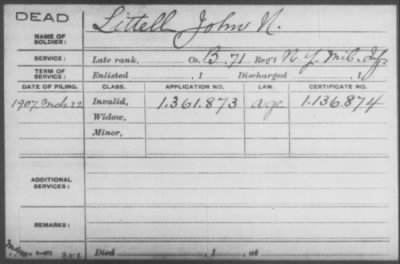 DEAD
NAME OF SOLDIER: Littell John N.
SERVICE: Late rank, Co. B. 71 Reg't N. Y. Mil. Inf.
TERM OF SERVICE: Enlisted , 1 Discharged , 1
DATE OF FILING. CLASS. APPLICATION NO. LAW. CERTIFICATE NO.
1907. Mch. 22 Invalid, 1.361.873 age 1.136.874
Widow,
Minor,
ADDITIONAL SERVICES:
REMARKS:
Died , 1 , at